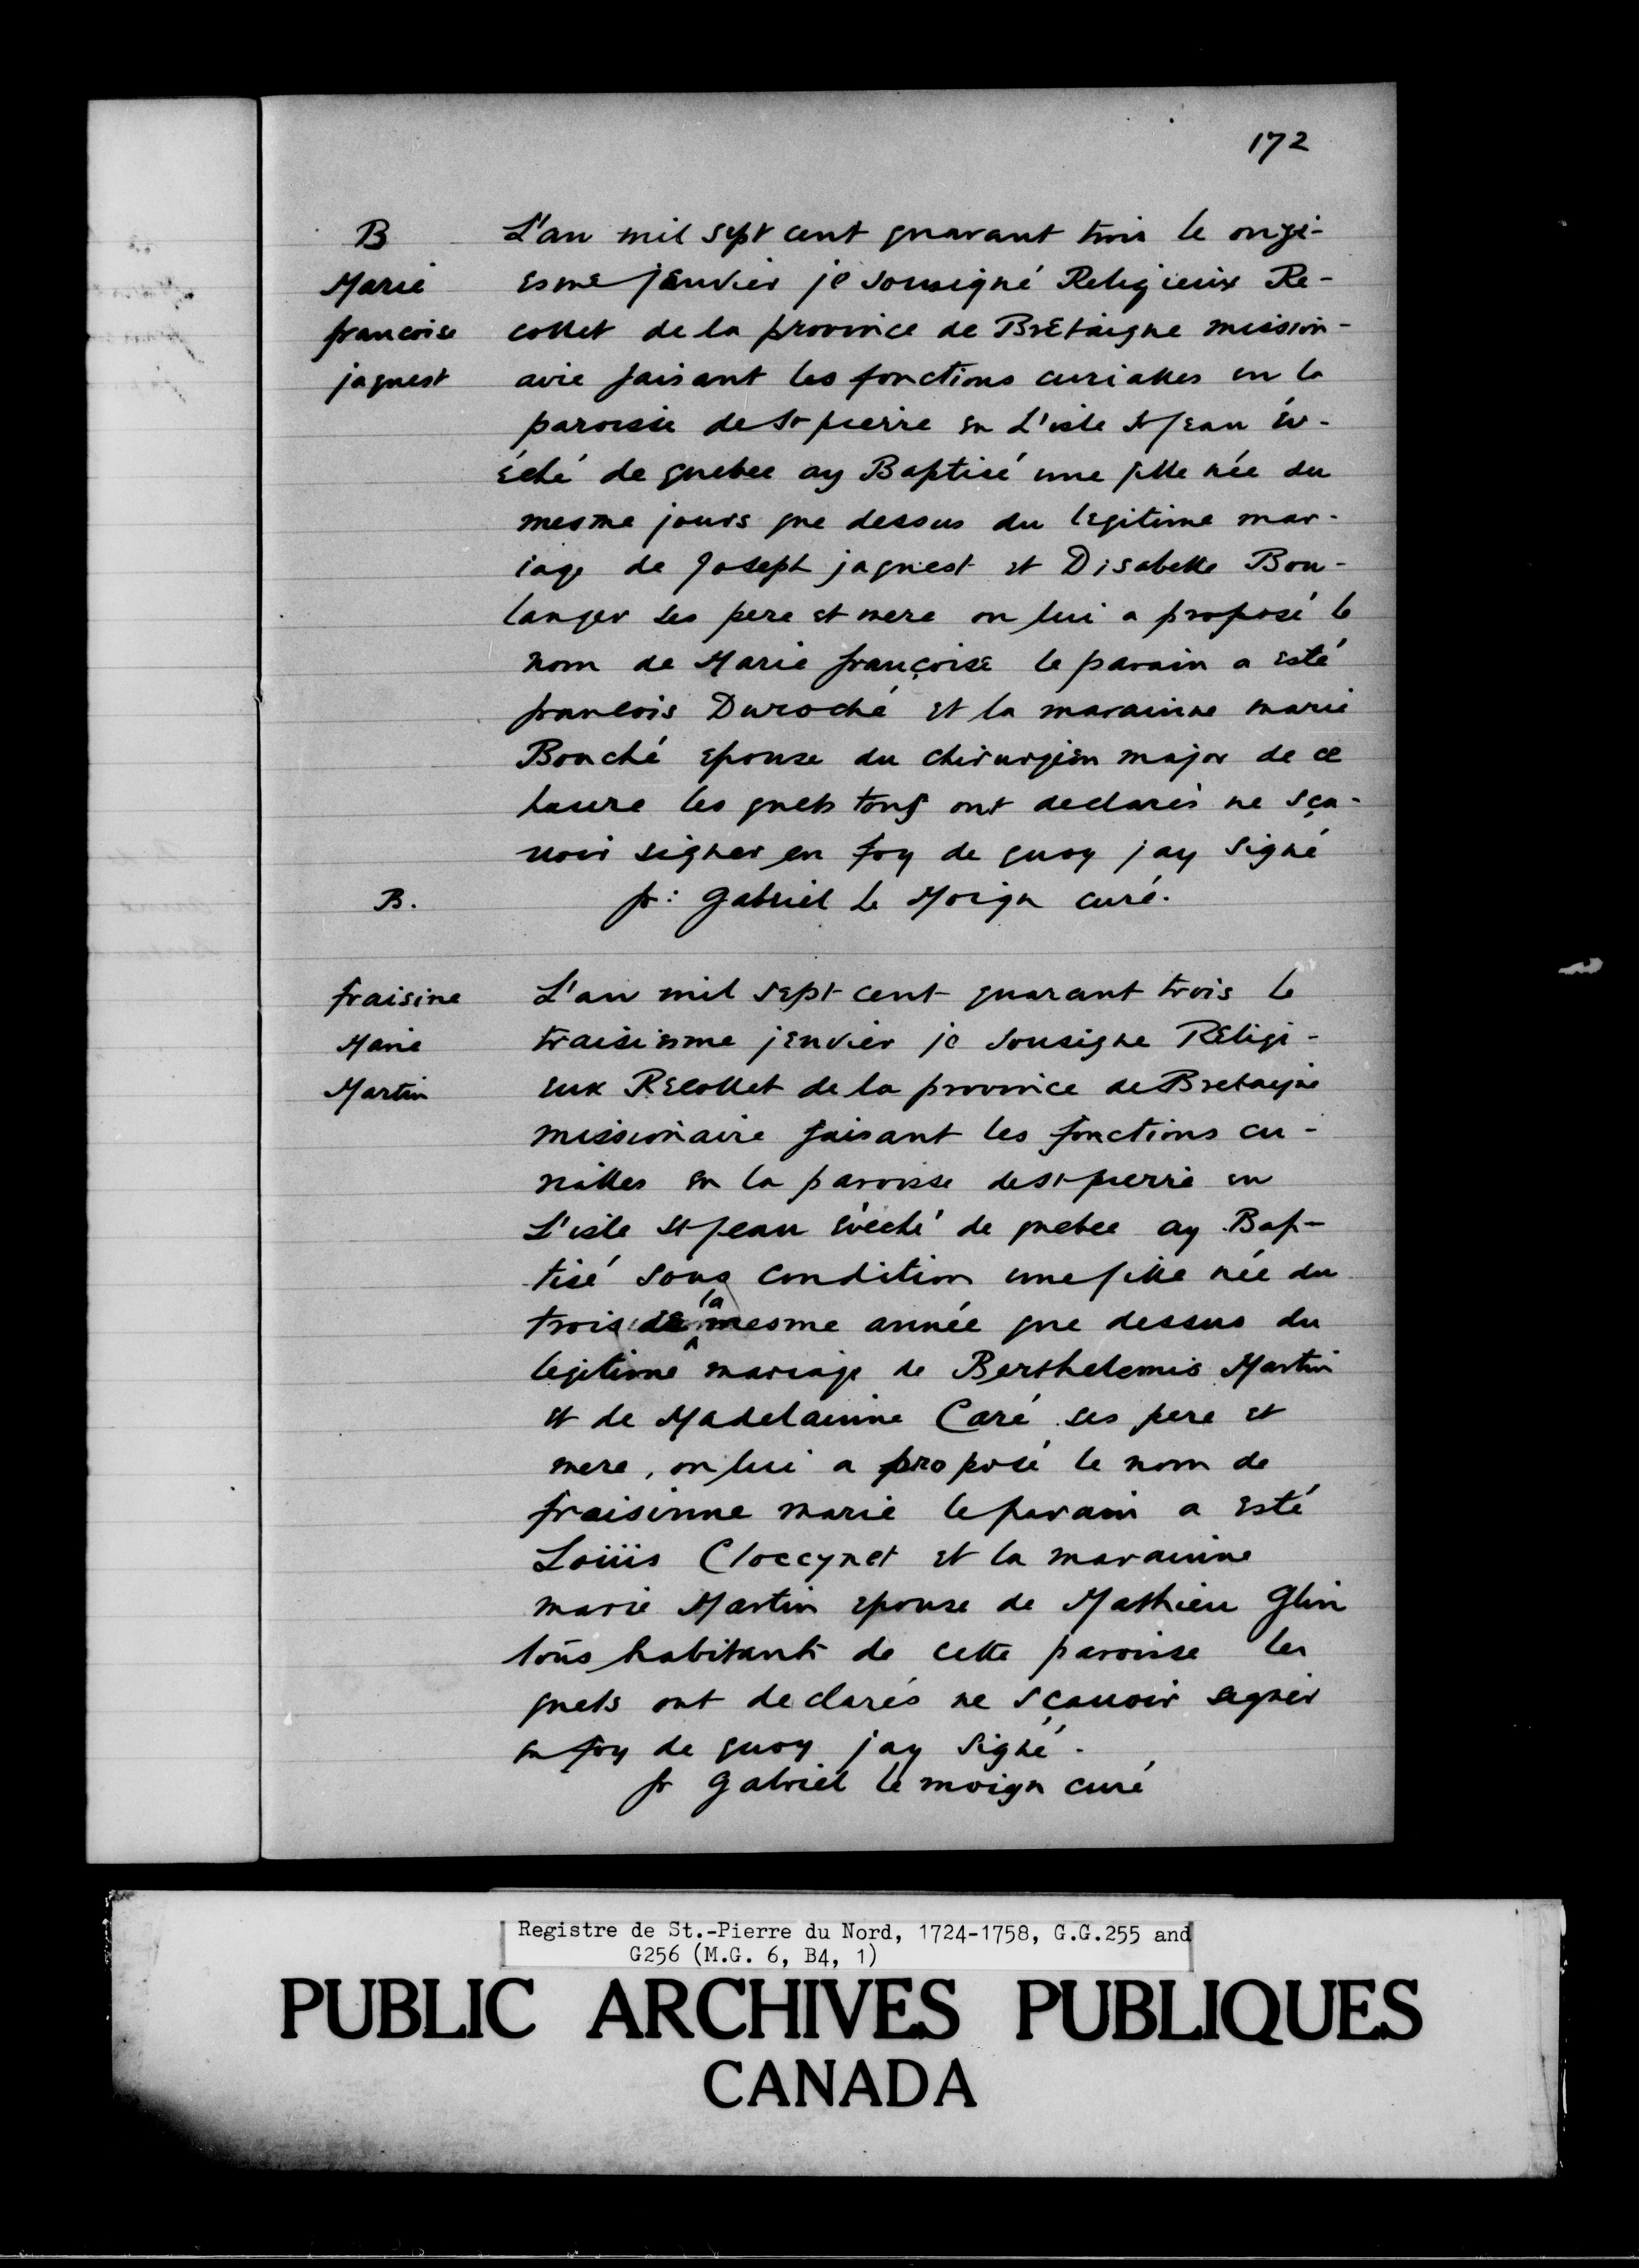 172
B
Marie
francoise
jaquest
L'an mil sept cent quarant trois le onzi-
esme jEnvier je sousigné Religieux Re-
collet de la province de BrEtaigne mission-
aire faisant les fonctions curialles en la
paroisse de St pierre en L'isle St jean Ev-
éché de quebec ay Baptisé une fille née du
mesme jours que dessus du legitime mar-
iage de Joseph jaquest et Disabelle Bou-
langer ses pere et mere on lui a proposé le
nom de Marie françoise le parain a esté
francois Duroché et la marainne marie
Bouché epouse du chirurgien major de ce
havre les quels tous ont declarés ne sça-
uoir signer en foy de quoy jay signé
fr: Gabriel Le Moign curé.
B.
fraisine
Marie
Martin
L'an mil sept cent quarant trois le
traisiesme jEnvier je sousigne Religi-
eux REcollet de la province de Bretaigne
missionaire faisant les fonctions cu-
rialles en la paroisse de St pierre en
L'isle St jean évêché de quebec ay Bap-
tisé sous condition une fille née du
trois de la mesme année que dessus du
legitime mariage de Berthelemie Martin
et de Madelainne Caré ses pere et
mere, on lui a proposé le nom de
fraisinne marie le parain a esté
Loüis Cloccynet et la marainne
marie Martin epouse de Mathieu Glin
tous habitants de cette paroisse les
quels ont declarés ne sçauoir signer
en foy de quoy jay signé.
fr Gabriel le moign curé
Registre de St.-Pierre du Nord, 1724-1758, G.G.255 and
G256 (M.G. 6, B4, 1)
PUBLIC ARCHIVES PUBLIQUES
CANADA